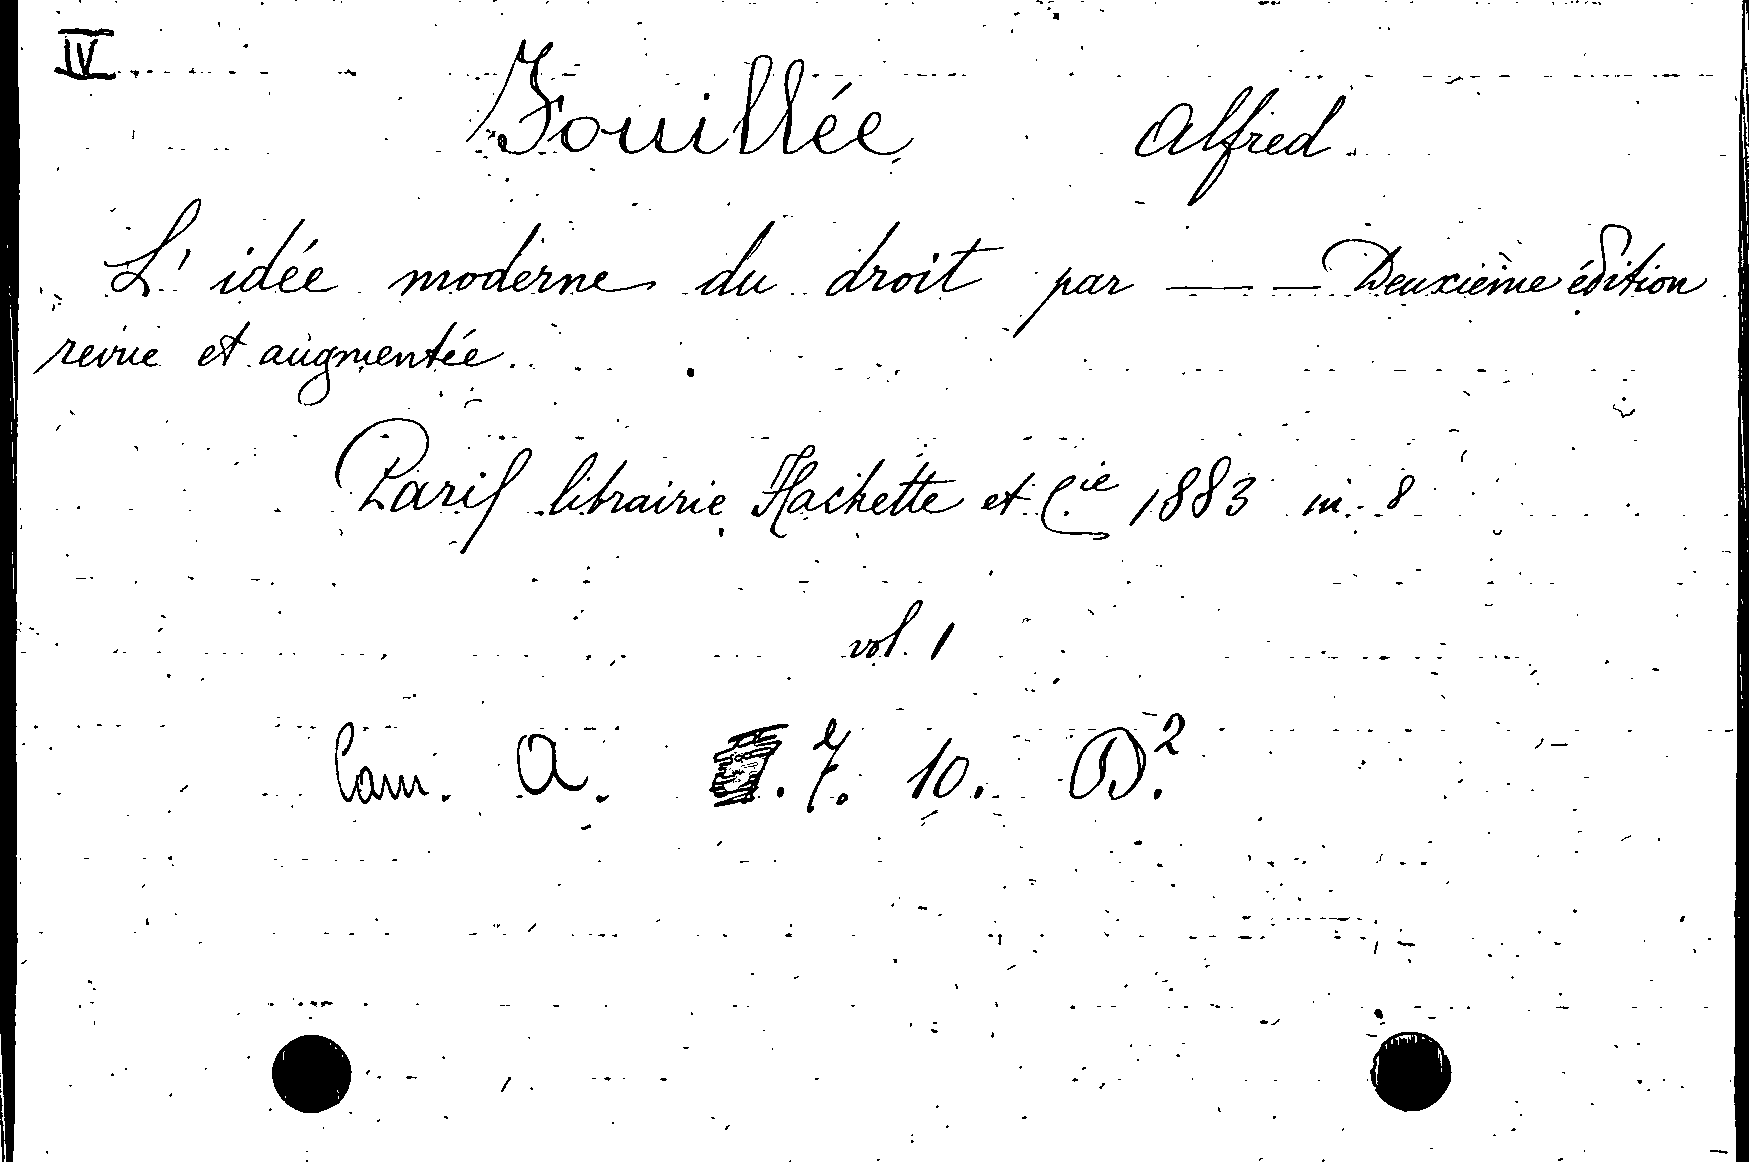 IV
Fouillée Alfred
L'idée moderne du droit par — — Deuxième édition
revue et augmentée.
Paris librairie Hachette et Cie 1883 in 8
vol. 1
Cam. A. . 7. 10. D.2